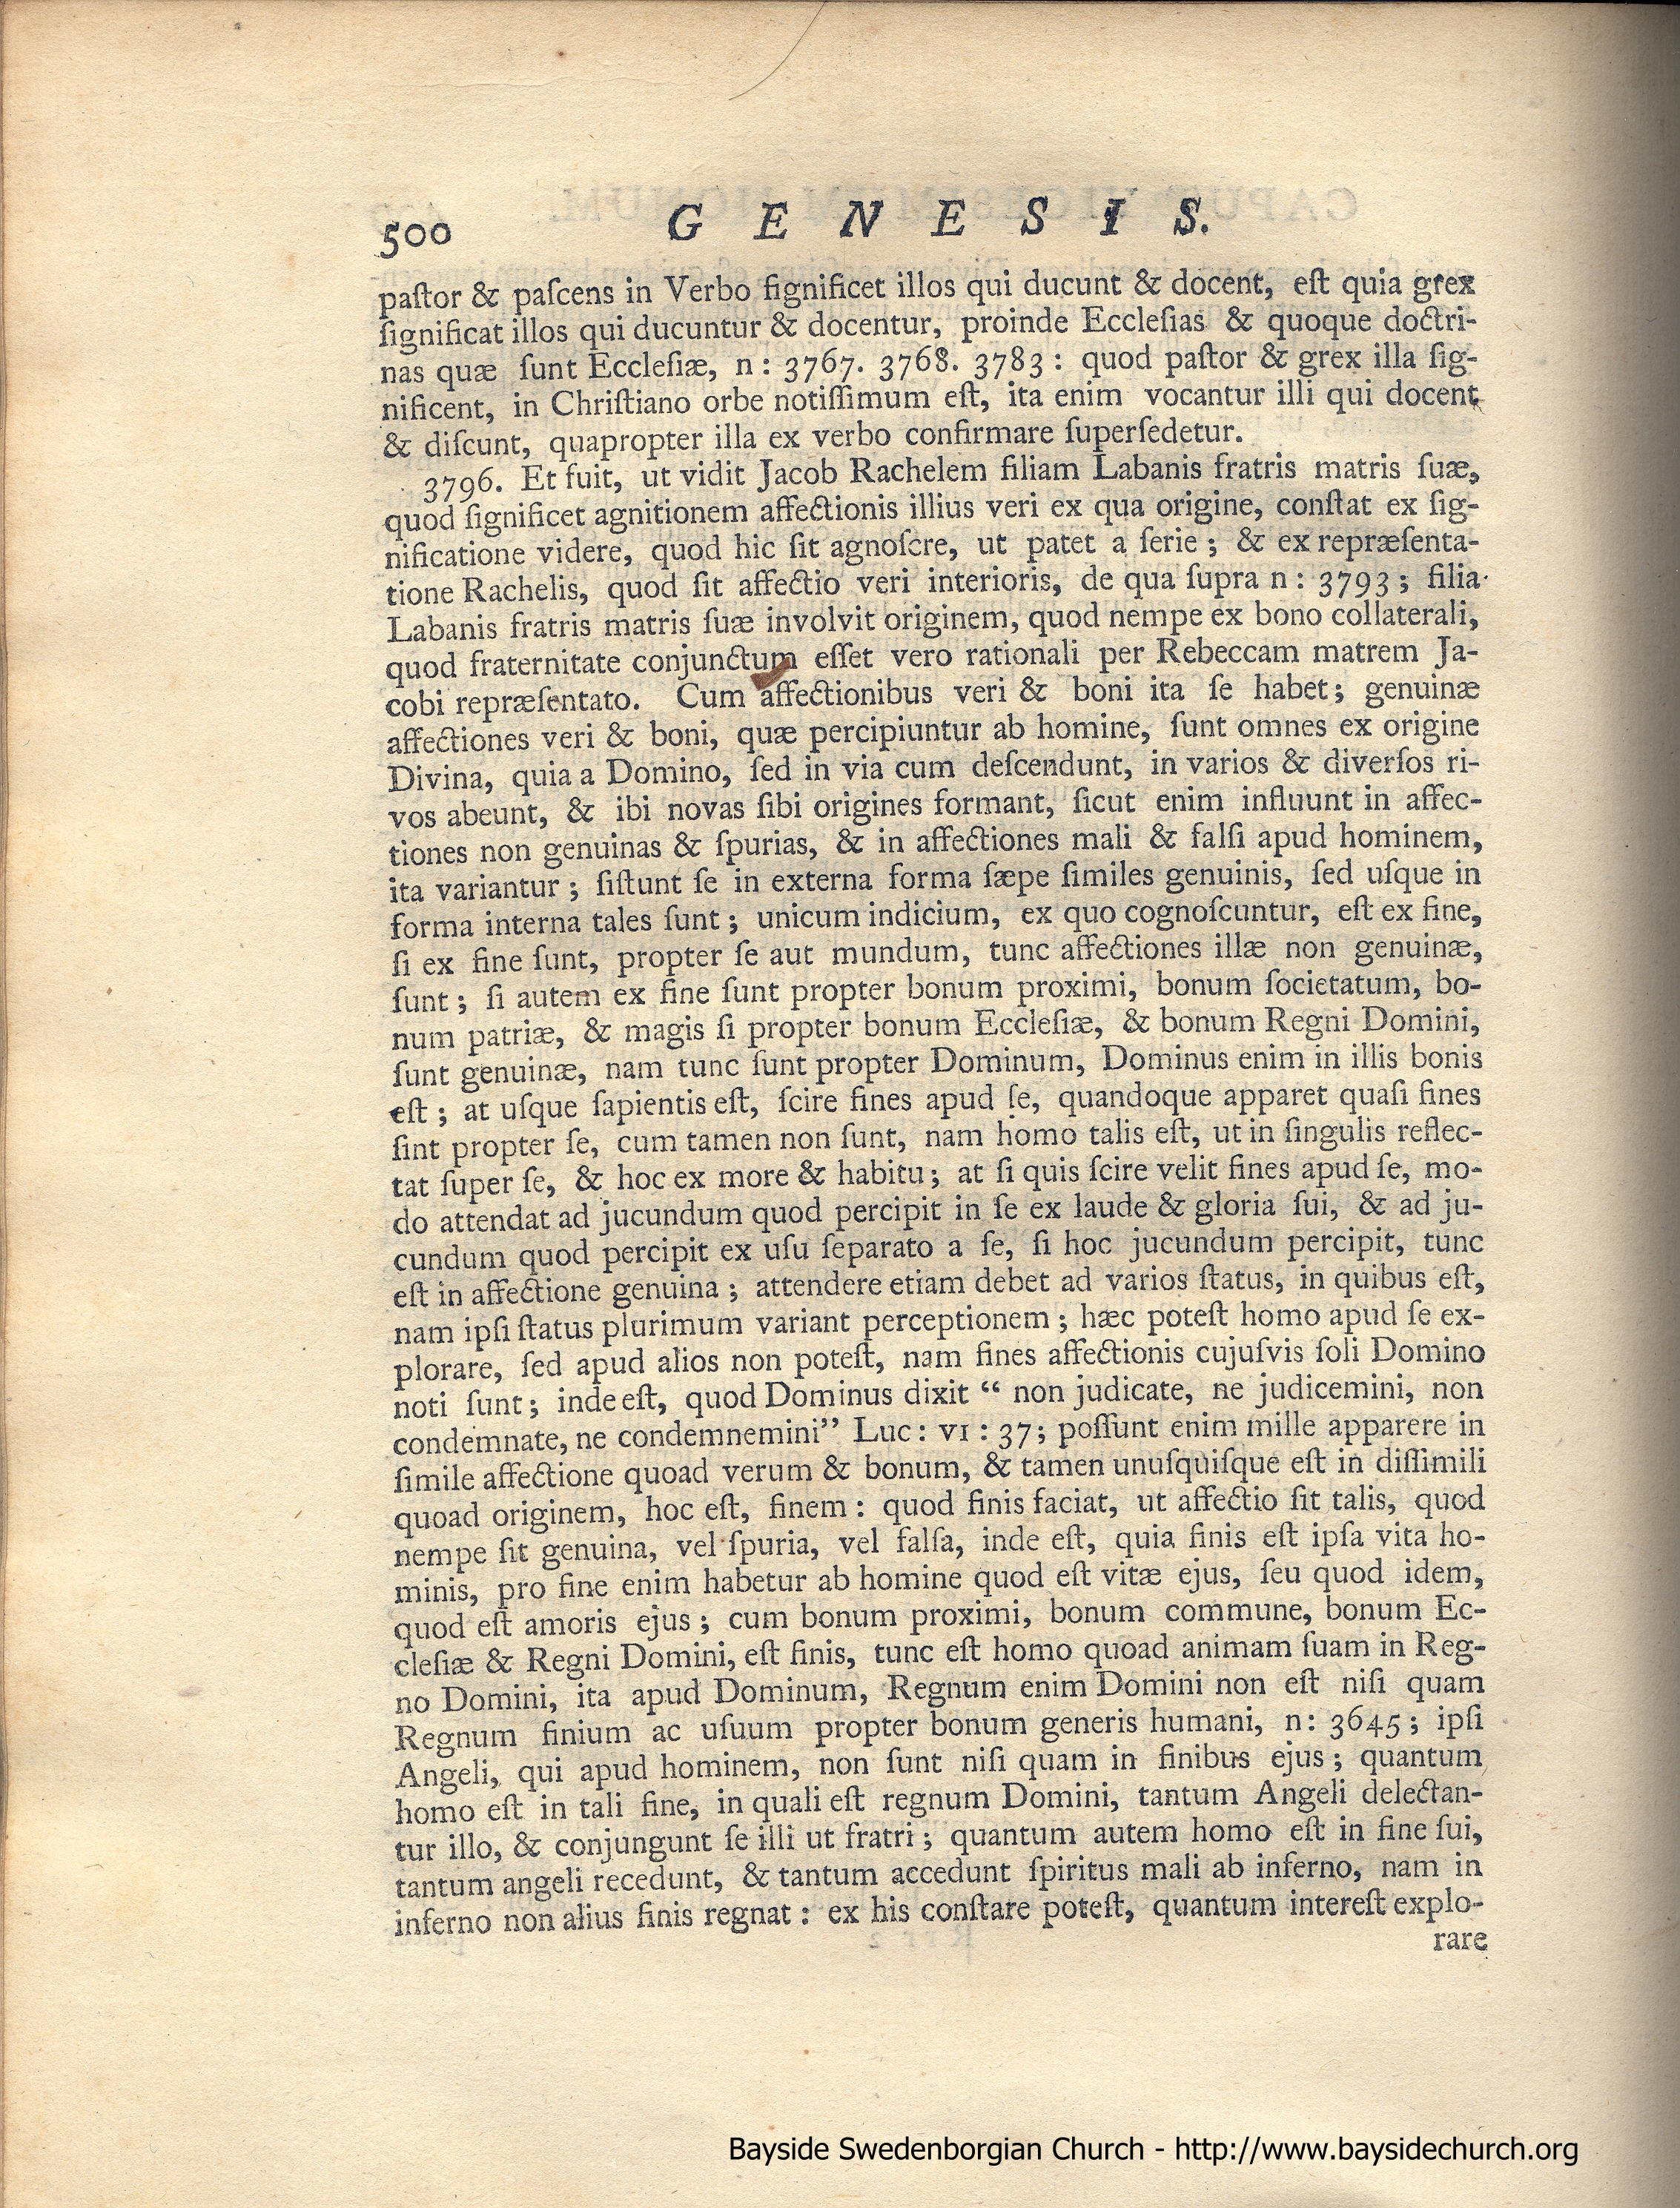 500 GENESIS.
paſtor & paſcens in Verbo ſignificet illos qui ducunt & docent, eſt quia grex
ſignificat illos qui ducuntur & docentur, proinde Eccleſias & quoque doctri-
nas quæ ſunt Eccleſiæ, n: 3767. 3768. 3783: quod paſtor & grex illa ſig-
nificent, in Chriſtiano orbe notiſſimum eſt, ita enim vocantur illi qui docent
& diſcunt, quapropter illa ex verbo confirmare ſuperſedetur.
3796. Et fuit, ut vidit Jacob Rachelem filiam Labanis fratris matris ſuæ,
quod ſignificet agnitionem affectionis illius veri ex qua origine, conſtat ex ſig-
nificatione videre, quod hic ſit agnoſcre, ut patet a ſerie; & ex repræſenta-
tione Rachelis, quod ſit affectio veri interioris, de qua ſupra n: 3793; filia
Labanis fratris matris ſuæ involvit originem, quod nempe ex bono collaterali,
quod fraternitate conjunctum eſſet vero rationali per Rebeccam matrem Ja-
cobi repræſentato. Cum affectionibus veri & boni ita ſe habet; genuinæ
affectiones veri & boni, quæ percipiuntur ab homine, ſunt omnes ex origine
Divina, quia a Domino, ſed in via cum deſcendunt, in varios & diverſos ri-
vos abeunt, & ibi novas ſibi origines formant, ſicut enim influunt in affec-
tiones non genuinas & ſpurias, & in affectiones mali & falſi apud hominem,
ita variantur; ſiſtunt ſe in externa forma ſæpe ſimiles genuinis, ſed uſque in
forma interna tales ſunt; unicum indicium, ex quo cognoſcuntur, eſt ex fine,
ſi ex fine ſunt, propter ſe aut mundum, tunc affectiones illæ non genuinæ,
ſunt; ſi autem ex fine ſunt propter bonum proximi, bonum ſocietatum, bo-
num patriæ, & magis ſi propter bonum Eccleſiæ, & bonum Regni Domini,
ſunt genuinæ, nam tunc ſunt propter Dominum, Dominus enim in illis bonis
eſt; at uſque ſapientis eſt, ſcire fines apud ſe, quandoque apparet quaſi fines
ſint propter ſe, cum tamen non ſunt, nam homo talis eſt, ut in ſingulis reflec-
tat ſuper ſe, & hoc ex more & habitu; at ſi quis ſcire velit fines apud ſe, mo-
do attendat ad jucundum quod percipit in ſe ex laude & gloria ſui, & ad ju-
cundum quod percipit ex uſu ſeparato a ſe, ſi hoc jucundum percipit, tunc
eſt in affectione genuina; attendere etiam debet ad varios ſtatus, in quibus eſt,
nam ipſi ſtatus plurimum variant perceptionem; hæc poteſt homo apud ſe ex-
plorare, ſed apud alios non poteſt, nam fines affectionis cujuſvis ſoli Domino
noti ſunt; inde eſt, quod Dominus dixit “ non judicate, ne judicemini, non
condemnate, ne condemnemini” Luc: VI: 37; poſſunt enim mille apparere in
ſimile affectione quoad verum & bonum, & tamen unuſquiſque eſt in diſſimili
quoad originem, hoc eſt, finem: quod finis faciat, ut affectio ſit talis, quod
nempe ſit genuina, vel ſpuria, vel falſa, inde eſt, quia finis eſt ipſa vita ho-
minis, pro fine enim habetur ab homine quod eſt vitæ ejus, ſeu quod idem,
quod eſt amoris ejus; cum bonum proximi, bonum commune, bonum Ec-
cleſiæ & Regni Domini, eſt finis, tunc eſt homo quoad animam ſuam in Reg-
no Domini, ita apud Dominum, Regnum enim Domini non eſt niſi quam
Regnum finium ac uſuum propter bonum generis humani, n: 3645; ipſi
Angeli, qui apud hominem, non ſunt niſi quam in finibus ejus; quantum
homo eſt in tali fine, in quali eſt regnum Domini, tantum Angeli delectan-
tur illo, & conjungunt ſe illi ut fratri; quantum autem homo eſt in fine ſui,
tantum angeli recedunt, & tantum accedunt ſpiritus mali ab inferno, nam in
inferno non alius finis regnat: ex his conſtare poteſt, quantum intereſt explo-
rare
Bayside Swedenborgian Church - http://www.baysidechurch.org